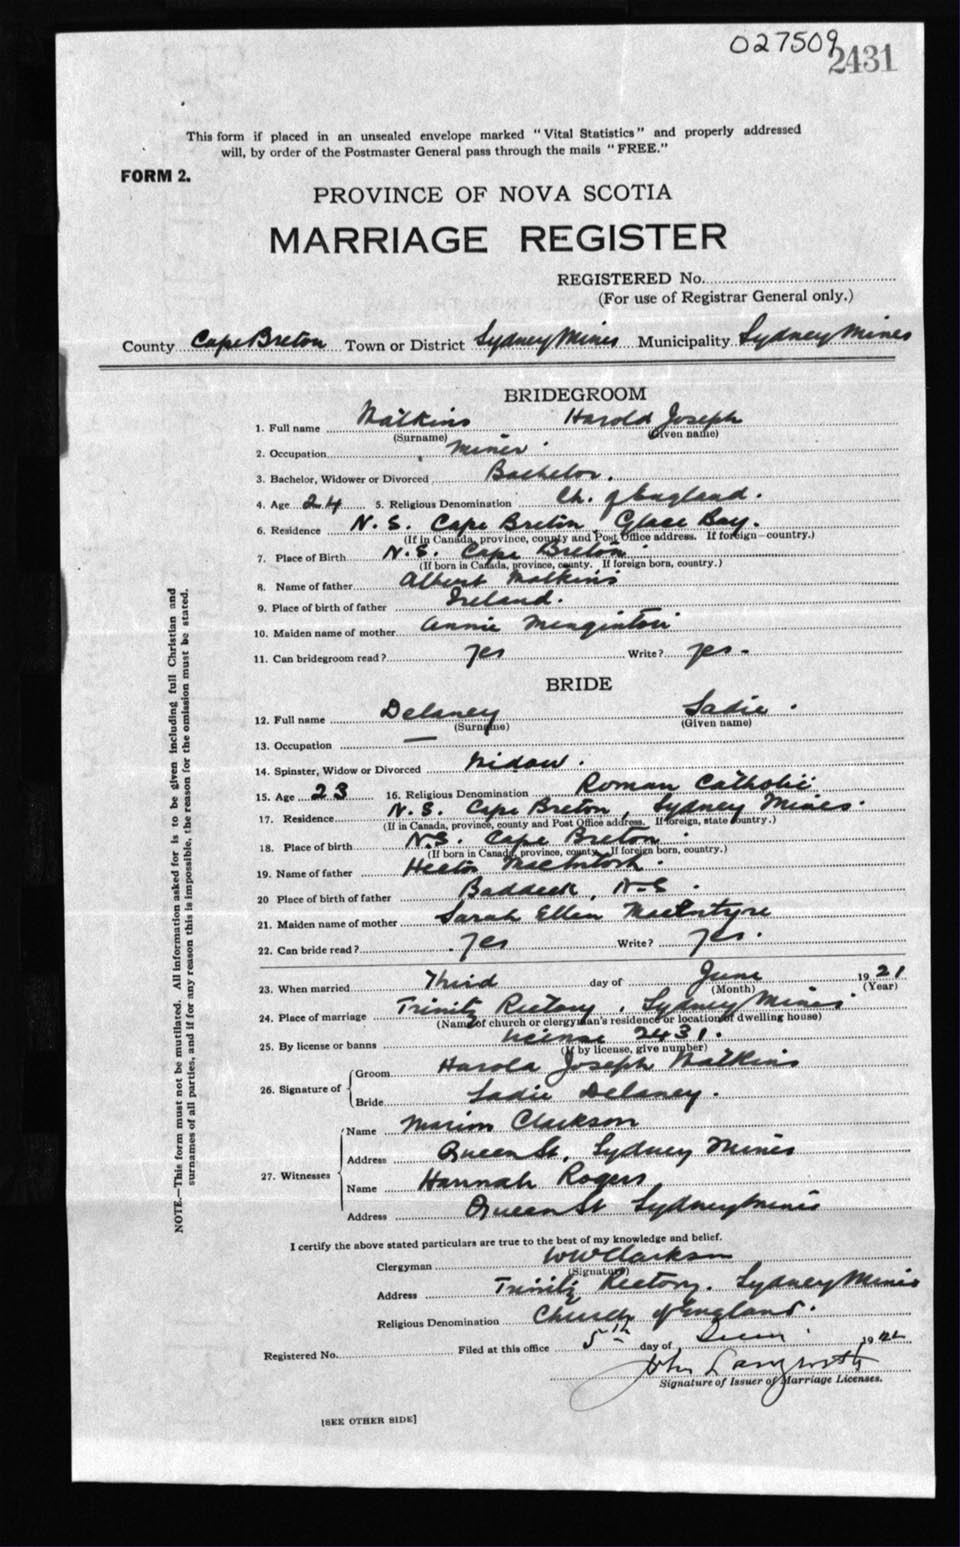 027509
2431
This form if placed in an unsealed envelope marked "Vital Statistics" and properly addressed
will, by order of the Postmaster General pass through the mails "FREE."
FORM 2.
PROVINCE OF NOVA SCOTIA
MARRIAGE REGISTER
REGISTERED No.
(For use of Registrar General only.)
County Cape Breton Town or District Sydney Mines Municipality Sydney Mines
BRIDEGROOM
1. Full name Watkins Harold Joseph
(Surname) (Given name)
2. Occupation Miner
3. Bachelor, Widower or Divorced Bachelor.
4. Age 24 5. Religious Denomination Ch. of England.
6. Residence N. S. Cape Breton, Glace Bay.
(If in Canada, province, county and Post Office address. If foreign—country.)
7. Place of Birth N. S. Cape Breton.
(If born in Canada, province, county. If foreign born, country.)
8. Name of father Albert Watkins
9. Place of birth of father Ireland.
10. Maiden name of mother Annie
11. Can bridegroom read? Yes Write? Yes.
BRIDE
12. Full name Delaney Sadie.
(Surname) (Given name)
13. Occupation —
14. Spinster, Widow or Divorced Widow.
15. Age 23 16. Religious Denomination Roman Catholic
17. Residence N. S. Cape Breton, Sydney Mines.
(If in Canada, province, county and Post Office address. If foreign, state country.)
18. Place of birth N.S. Cape Breton
(If born in Canada, province, county. If foreign born, country.)
19. Name of father Hector MacIntosh.
20 Place of birth of father Baddeck, N.S.
21. Maiden name of mother Sarah Ellen MacIntyre
22. Can bride read? Yes Write? Yes.
23. When married Third day of June 1921
(Month) (Year)
24. Place of marriage Trinity Rectory, Sydney Mines.
(Name of church or clergyman's residence or location of dwelling house)
25. By license or banns License 2431.
(If by license, give number)
26. Signature of Groom Harold Joseph Watkins
Bride Sadie Delaney.
27. Witnesses Name Marion Clarkson
Address Queen St. Sydney Mines
Name Hannah Rogers
Address Queen St Sydney Mines
I certify the above stated particulars are true to the best of my knowledge and belief.
Clergyman W W Clarkson
(Signature)
Address Trinity Rectory. Sydney Mines
Religious Denomination Church of England.
Registered No. Filed at this office 5th day of 19
John Langworth
Signature of Issuer of Marriage Licenses.
[SEE OTHER SIDE]
NOTE.—This form must not be mutilated. All information asked for is to be given including full Christian and
surnames of all parties, and if for any reason this is impossible, the reason for the omission must be stated.